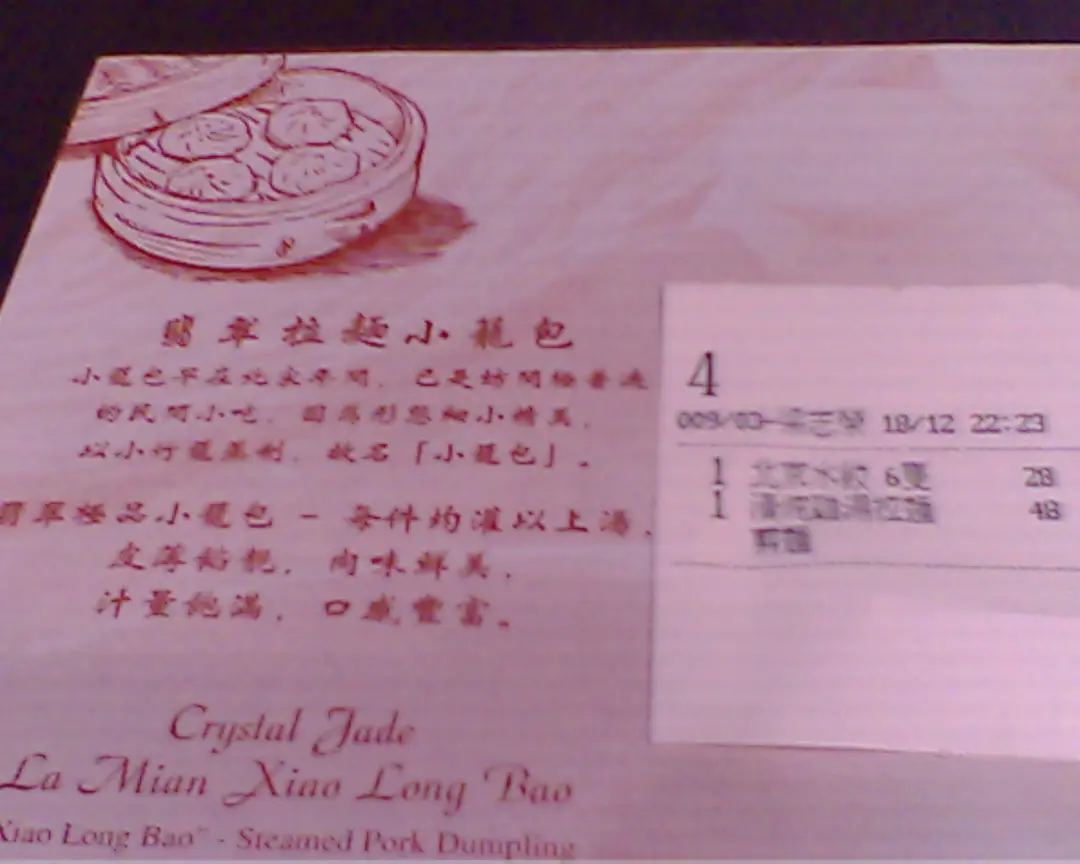 翡翠拉麵小籠包
小籠包早在北宋年間，已是坊間極普遍
的民間小吃，因為形態細小精美，
以小竹籠蒸制，故名「小籠包」。
翡翠極品小籠包 - 每件均灌以上湯，
皮薄餡靚，肉味鮮美，
汁量飽滿，口感豐富。
Crystal Jade
La Mian Xiao Long Bao
Xiao Long Bao" - Steamed Pork Dumpling
4
009/03 18/12 22:23
1 北京水餃 6隻 28
1 拉麵 48